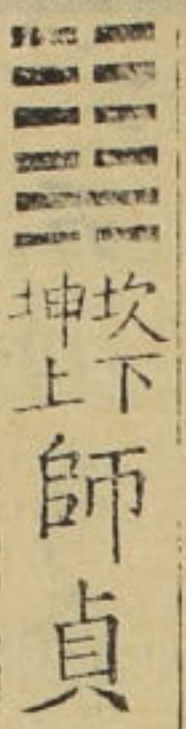 坎下
坤上
師貞